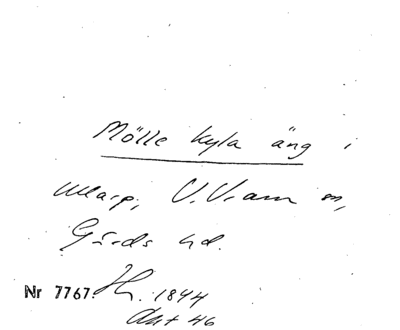 Mölle kyla äng i
Ullarp, V. Vram sn,
Gärds hd.
Nr 7767. Hh. 1844
Akt 46